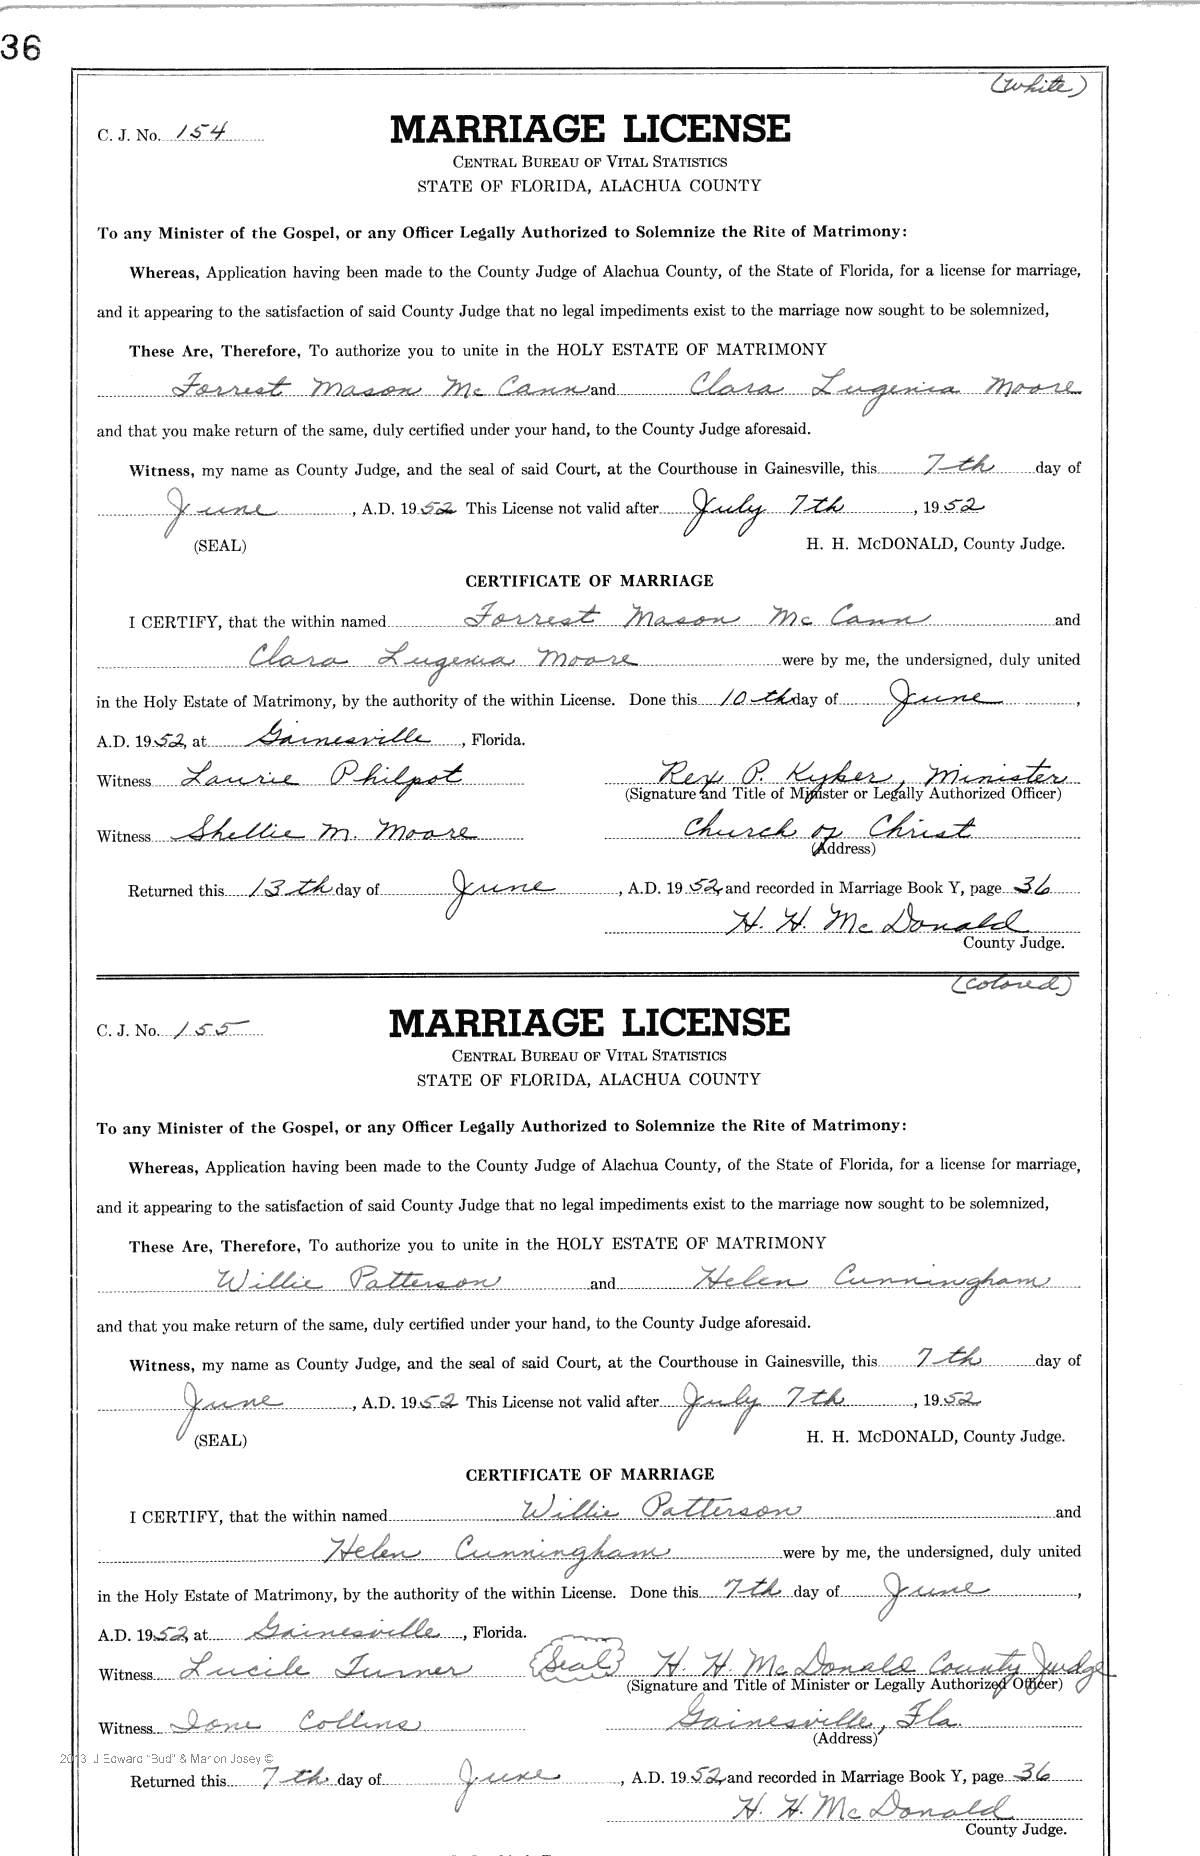 36
(White)
C. J. No. 154
MARRIAGE LICENSE
CENTRAL BUREAU OF VITAL STATISTICS
STATE OF FLORIDA, ALACHUA COUNTY
To any Minister of the Gospel, or any Officer Legally Authorized to Solemnize the Rite of Matrimony:
Whereas, Application having been made to the County Judge of Alachua County, of the State of Florida, for a license for marriage,
and it appearing to the satisfaction of said County Judge that no legal impediments exist to the marriage now sought to be solemnized,
These Are, Therefore, To authorize you to unite in the HOLY ESTATE OF MATRIMONY
Forrest Mason McCann and Clara Lugenia Moore
and that you make return of the same, duly certified under your hand, to the County Judge aforesaid.
Witness, my name as County Judge, and the seal of said Court, at the Courthouse in Gainesville, this 7th day of
June, A.D. 1952 This License not valid after July 7th, 1952
(SEAL) H. H. McDONALD, County Judge.
CERTIFICATE OF MARRIAGE
I CERTIFY, that the within named Forrest Mason McCann and
Clara Lugenia Moore were by me, the undersigned, duly united
in the Holy Estate of Matrimony, by the authority of the within License. Done this 10th day of June,
A.D. 1952, at Gainesville, Florida.
Witness Laurie Philpot Rex P. Kyker, Minister
(Signature and Title of Minister or Legally Authorized Officer)
Witness Shellie M. Moore Church of Christ
(Address)
Returned this 13th day of June, A.D. 1952, and recorded in Marriage Book Y, page 36
H. H. McDonald
County Judge.
(Colored)
C. J. No. 155
MARRIAGE LICENSE
CENTRAL BUREAU OF VITAL STATISTICS
STATE OF FLORIDA, ALACHUA COUNTY
To any Minister of the Gospel, or any Officer Legally Authorized to Solemnize the Rite of Matrimony:
Whereas, Application having been made to the County Judge of Alachua County, of the State of Florida, for a license for marriage,
and it appearing to the satisfaction of said County Judge that no legal impediments exist to the marriage now sought to be solemnized,
These Are, Therefore, To authorize you to unite in the HOLY ESTATE OF MATRIMONY
Willie Patterson and Helen Cunningham
and that you make return of the same, duly certified under your hand, to the County Judge aforesaid.
Witness, my name as County Judge, and the seal of said Court, at the Courthouse in Gainesville, this 7th day of
June, A.D. 1952 This License not valid after July 7th, 1952
(SEAL) H. H. McDONALD, County Judge.
CERTIFICATE OF MARRIAGE
I CERTIFY, that the within named Willie Patterson and
Helen Cunningham were by me, the undersigned, duly united
in the Holy Estate of Matrimony, by the authority of the within License. Done this 7th day of June,
A.D. 1952, at Gainesville, Florida.
Witness Lucile Turner (Seal) H. H. McDonald County Judge
(Signature and Title of Minister or Legally Authorized Officer)
Witness Ione Collins Gainesville, Fla.
(Address)
2013 J Edward "Bud" & Marion Josey ©
Returned this 7th day of June, A.D. 1952, and recorded in Marriage Book Y, page 36
H. H. McDonald
County Judge.